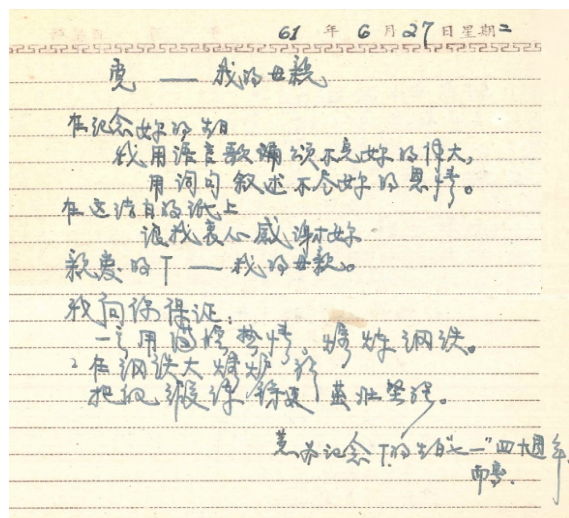 61 年 6 月 27 日星期二
党 —— 我的母親
在纪念妳的生日
我用语言歌诵颂不完妳的伟大,
用词句叙述不尽妳的恩情。
在这洁白的纸上
让我衷心感谢妳
親爱的T —— 我的母親。
我向你保证:
一定用满腔热情, 炼钢铁。
在钢铁大熔炉
把我锻炼得更茁壮坚强。
纪念T的生日"七一"四十週年
而写.